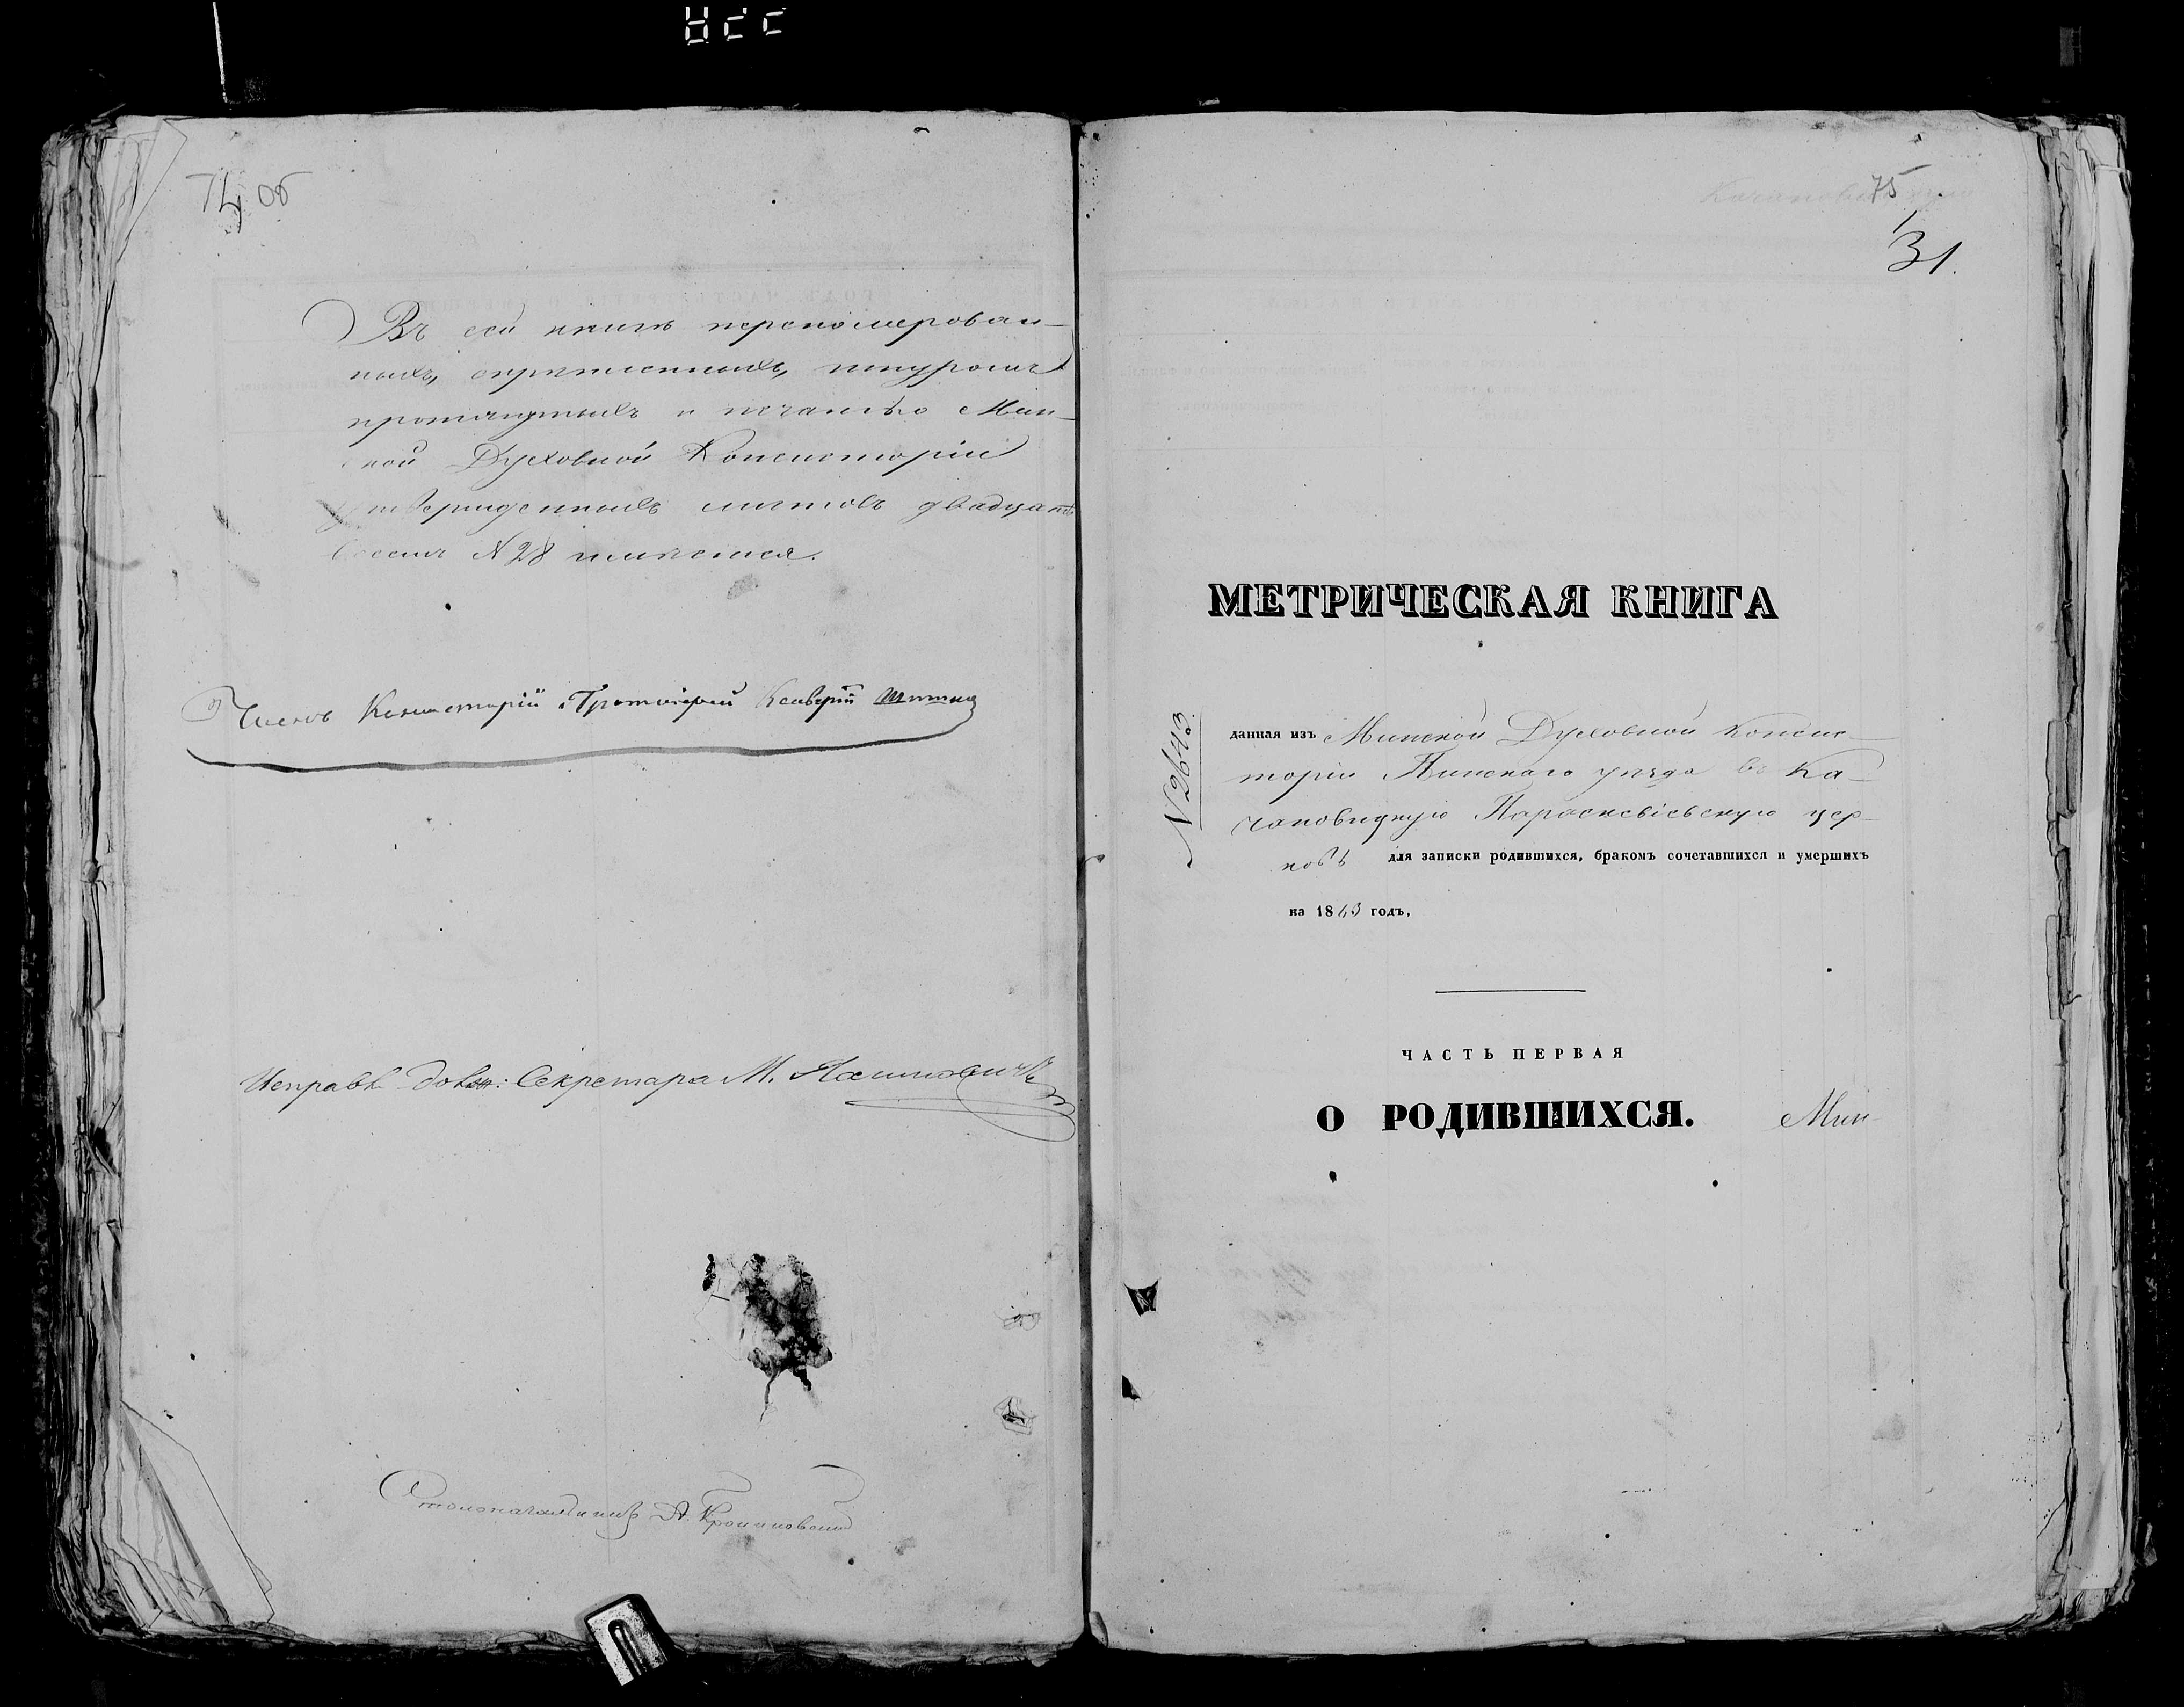 74 об
Въ сей книгѣ перекомерован-
ныхъ, скрѣпленныхъ, шнуромъ
протянутыхъ и печатью Мин-
ской Духовной Консисторіи
утвержденныхъ листовъ двадцать
восемь N 28 имѣется.
Членъ Консисторіи Протоіерей
Исправл. долж: Секретаря М.
Столоначальникъ А.
75
31.
МЕТРИЧЕСКАЯ КНИГА
N 2643
данная изъ Минской Духовной Консис-
торіи Пинскаго уѣзда въ Ка-
чановицкую Параскевіевскую цер-
ковь для записки родившихся, бракомъ сочетавшихся и умершихъ
на 1863 годъ.
ЧАСТЬ ПЕРВАЯ
О РОДИВШИХСЯ. Мин-